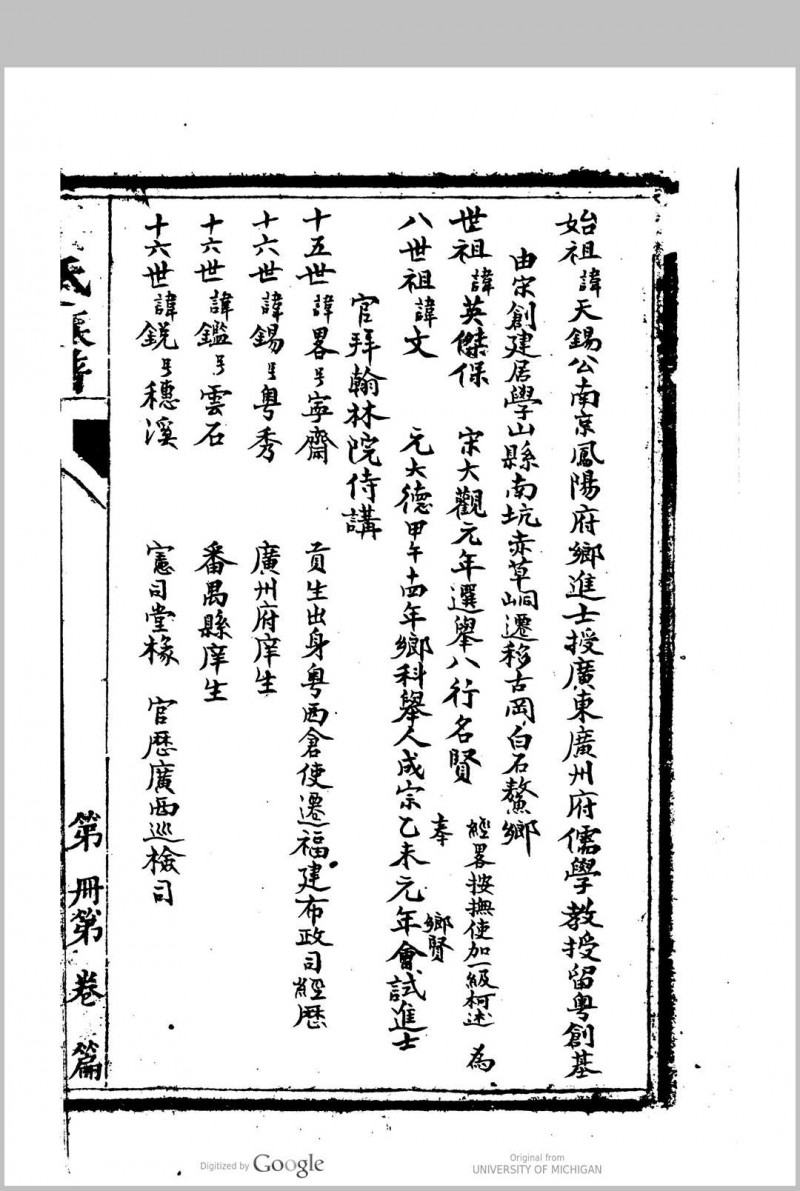 始祖諱天錫公南京鳳陽府鄉進士授廣東廣州府儒學教授留粤創基
由宋創建居學山縣南坑赤草峒遷移古岡白石鰲鄉
世祖諱英傑保 宋大觀元年選舉八行名賢 經畧按撫使加一級柯述 為
奉 鄉賢
八世祖諱文 元大德甲午十四年鄉科舉人成宗乙未元年會試進士
官拜翰林院侍講
十五世諱畧号寧齋 貢生出身粤西倉使遷福建布政司經歷
十六世諱錫号粤秀 廣州府庠生
十六世諱鑑号雲石 番禺縣庠生
十六世諱銳号穗溪 憲司堂椽 官歷廣西巡檢司
氏族譜
第 冊第 卷 篇
Digitized by Google
Original from
UNIVERSITY OF MICHIGAN